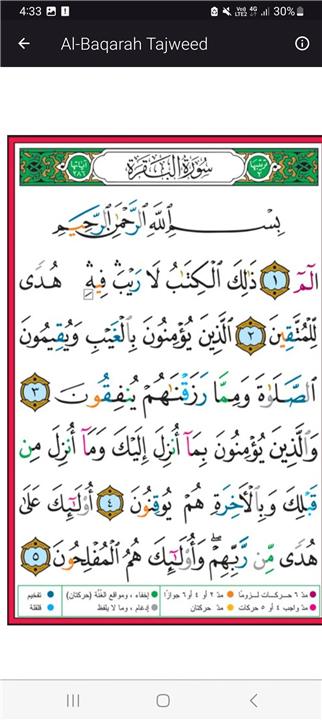 4:33
Vo) 4G LTE2 30%
Al-Baqarah Tajweed
ترتيبها ٢ سُورَةُ الْبَقَرَةِ آياتها ٢٨٦
بِسْمِ اللَّهِ الرَّحْمَٰنِ الرَّحِيمِ
الٓمٓ ١ ذَٰلِكَ الْكِتَٰبُ لَا رَيْبَ ۛ فِيهِ ۛ هُدًى
لِّلْمُتَّقِينَ ٢ الَّذِينَ يُؤْمِنُونَ بِالْغَيْبِ وَيُقِيمُونَ
الصَّلَوٰةَ وَمِمَّا رَزَقْنَٰهُمْ يُنفِقُونَ ٣
وَالَّذِينَ يُؤْمِنُونَ بِمَآ أُنزِلَ إِلَيْكَ وَمَآ أُنزِلَ مِن
قَبْلِكَ وَبِالْآخِرَةِ هُمْ يُوقِنُونَ ٤ أُولَٰٓئِكَ عَلَىٰ
هُدًى مِّن رَّبِّهِمْ ۖ وَأُولَٰٓئِكَ هُمُ الْمُفْلِحُونَ ٥
مدّ ٦ حركـات لـزومـًا مدّ ٢ أو ٤ أو ٦ جوازًا إخفاء ، ومواقع الغُنَّة (حركتان) تفخيم
مدّ واجب ٤ أو ٥ حركات مدّ حركتان إدغام ، وما لا يلفظ قلقلة